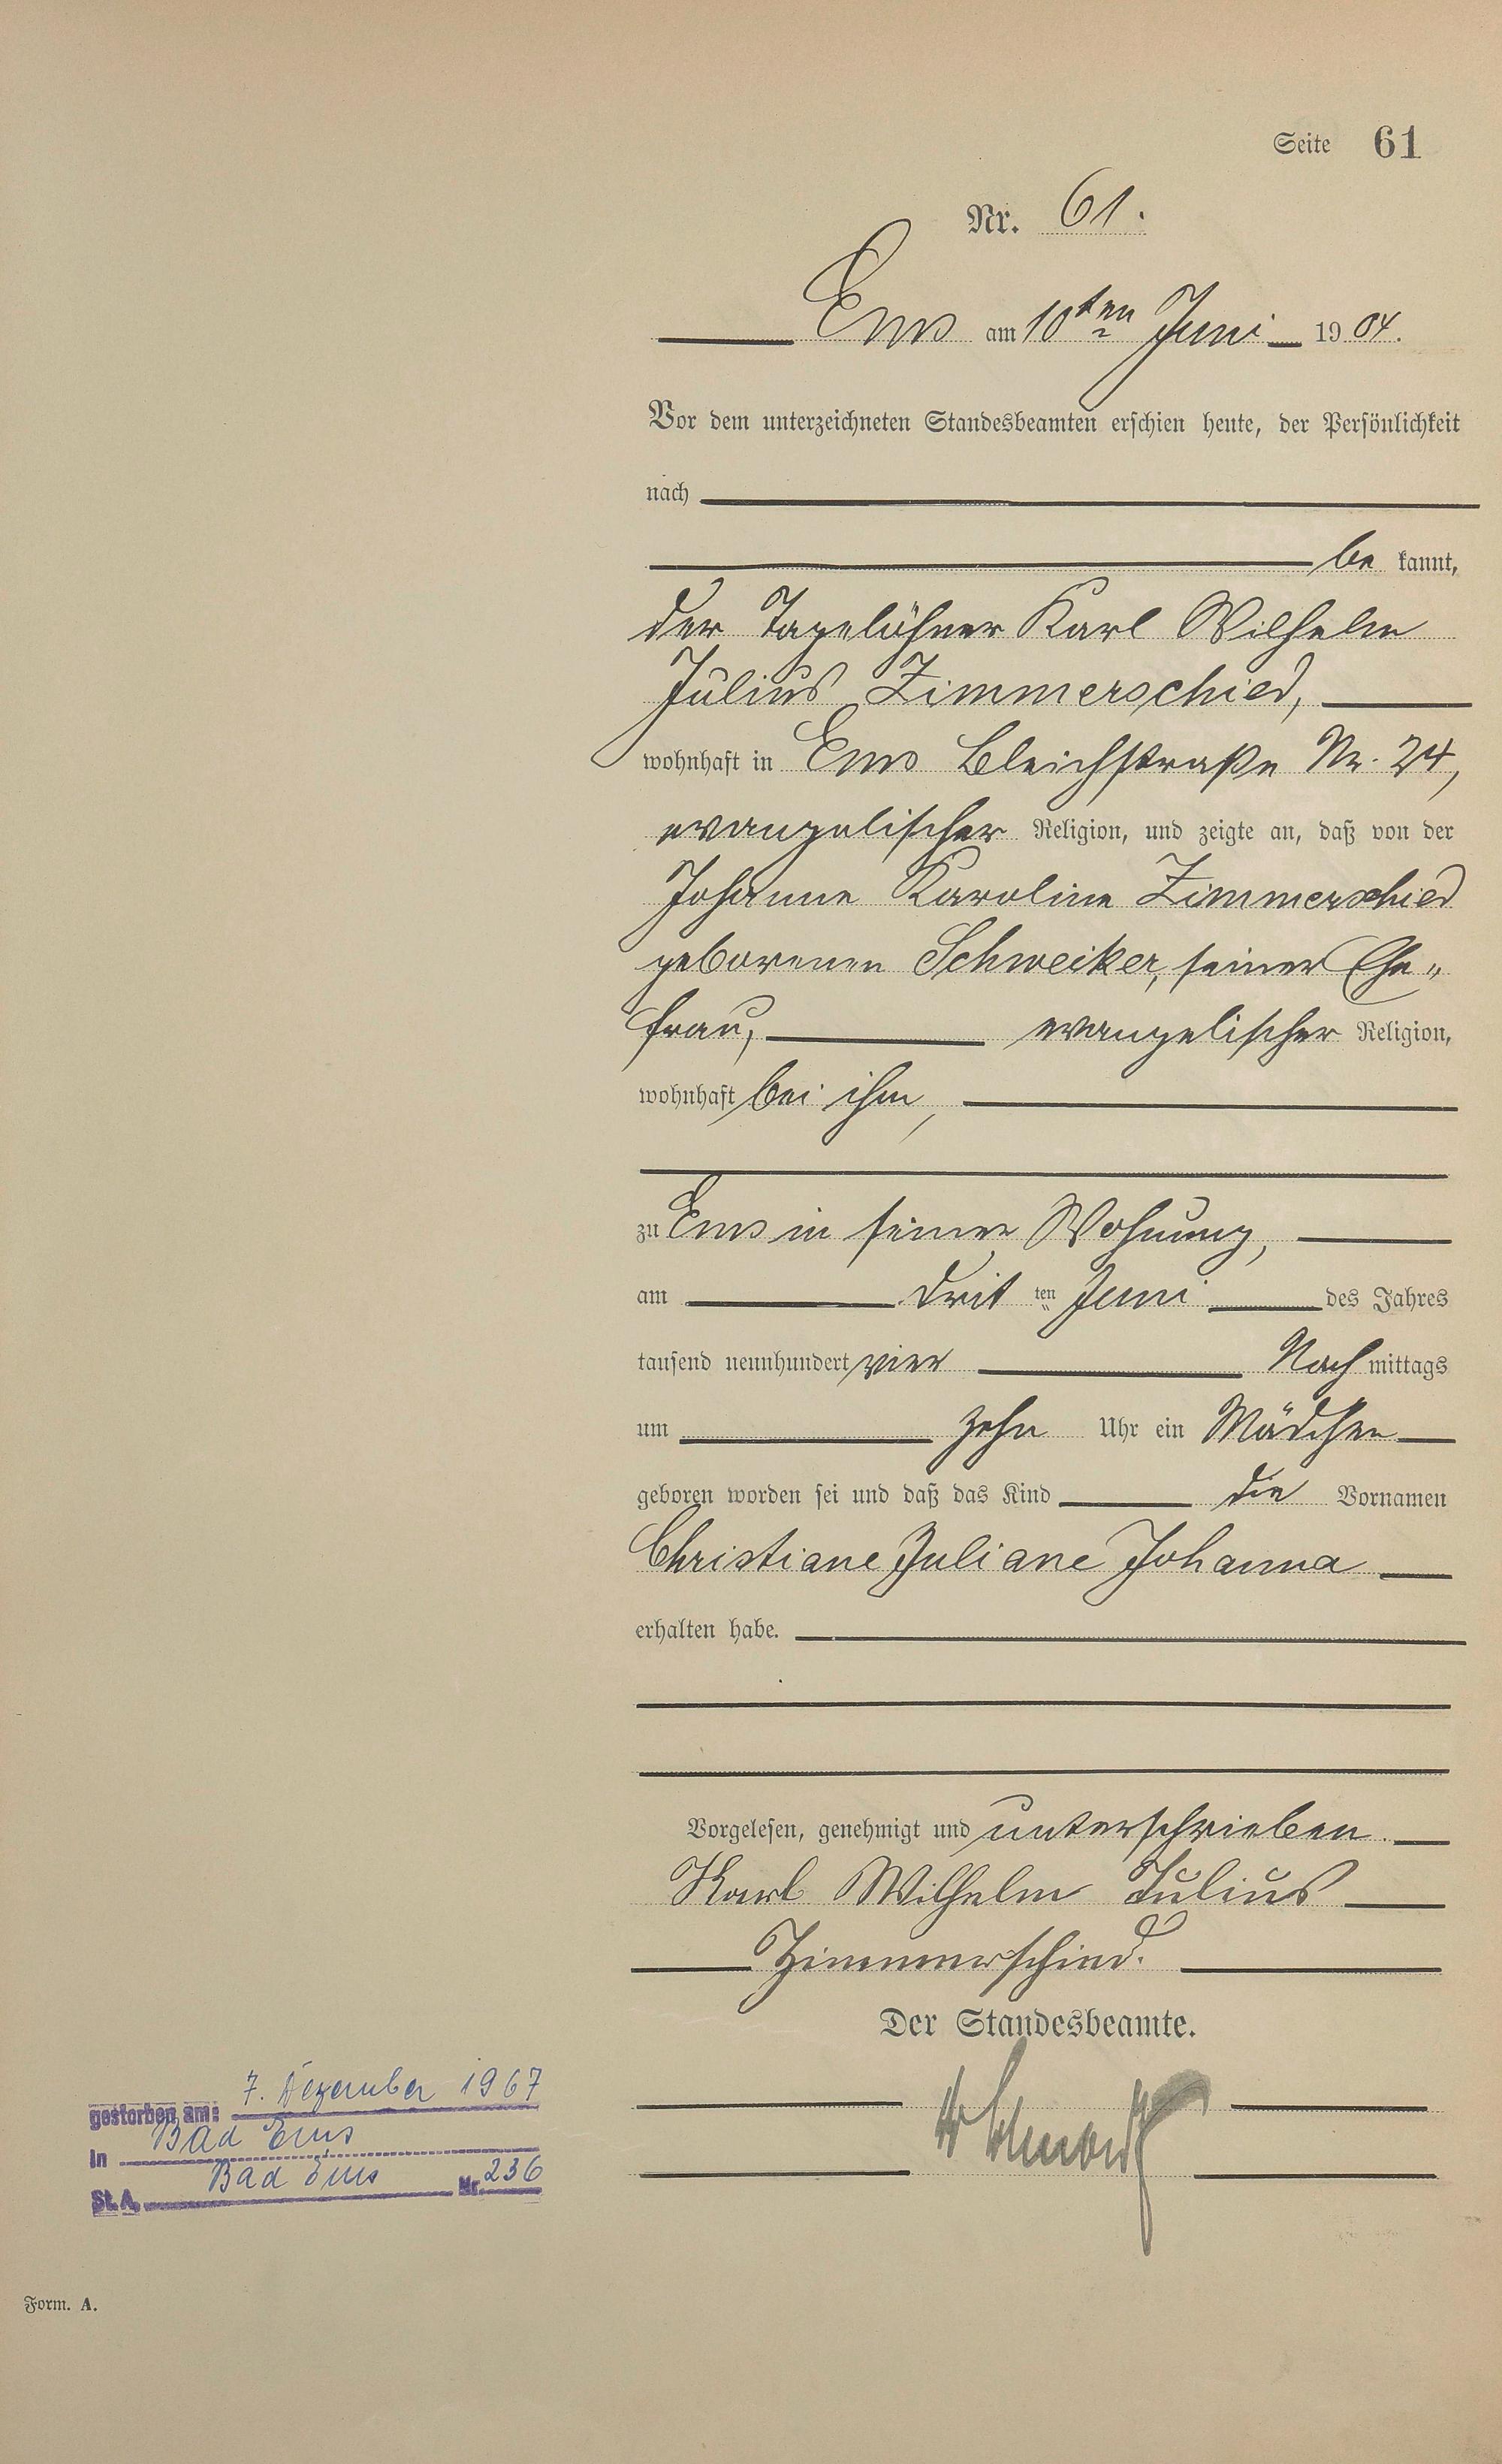 Seite 61
Nr. 61.
Ems am 10ten Juni 1904.
Vor dem unterzeichneten Standesbeamten erschien heute, der Persönlichkeit
nach
be kannt,
der Tagelöhner Karl Wilhelm
Julius Zimmerschied,
wohnhaft in Ems Bleichstraße Nr. 24,
evangelischer Religion, und zeigte an, daß von der
Johanne Karoline Zimmerschied
geborenen Schweiker, seiner Ehe„
frau, evangelischer Religion,
wohnhaft bei ihm,
zu Ems in seiner Wohnung,
am drit ten Juni des Jahres
tausend neunhundert vier Nach mittags
um zehn Uhr ein Mädchen
geboren worden sei und daß das Kind die Vornamen
Christiane Juliane Johanna
erhalten habe.
Vorgelesen, genehmigt und unterschrieben.
Karl Wilhelm Julius
Zimmerschied.
Der Standesbeamte.
gestorben am: 7. Dezember 1967
in Bad Ems
St. A. Bad Ems Nr. 236
Form. A.